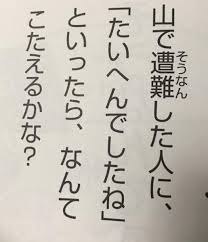 山で遭難した人に、
「たいへんでしたね」
といったら、なんて
こたえるかな?
そうなん